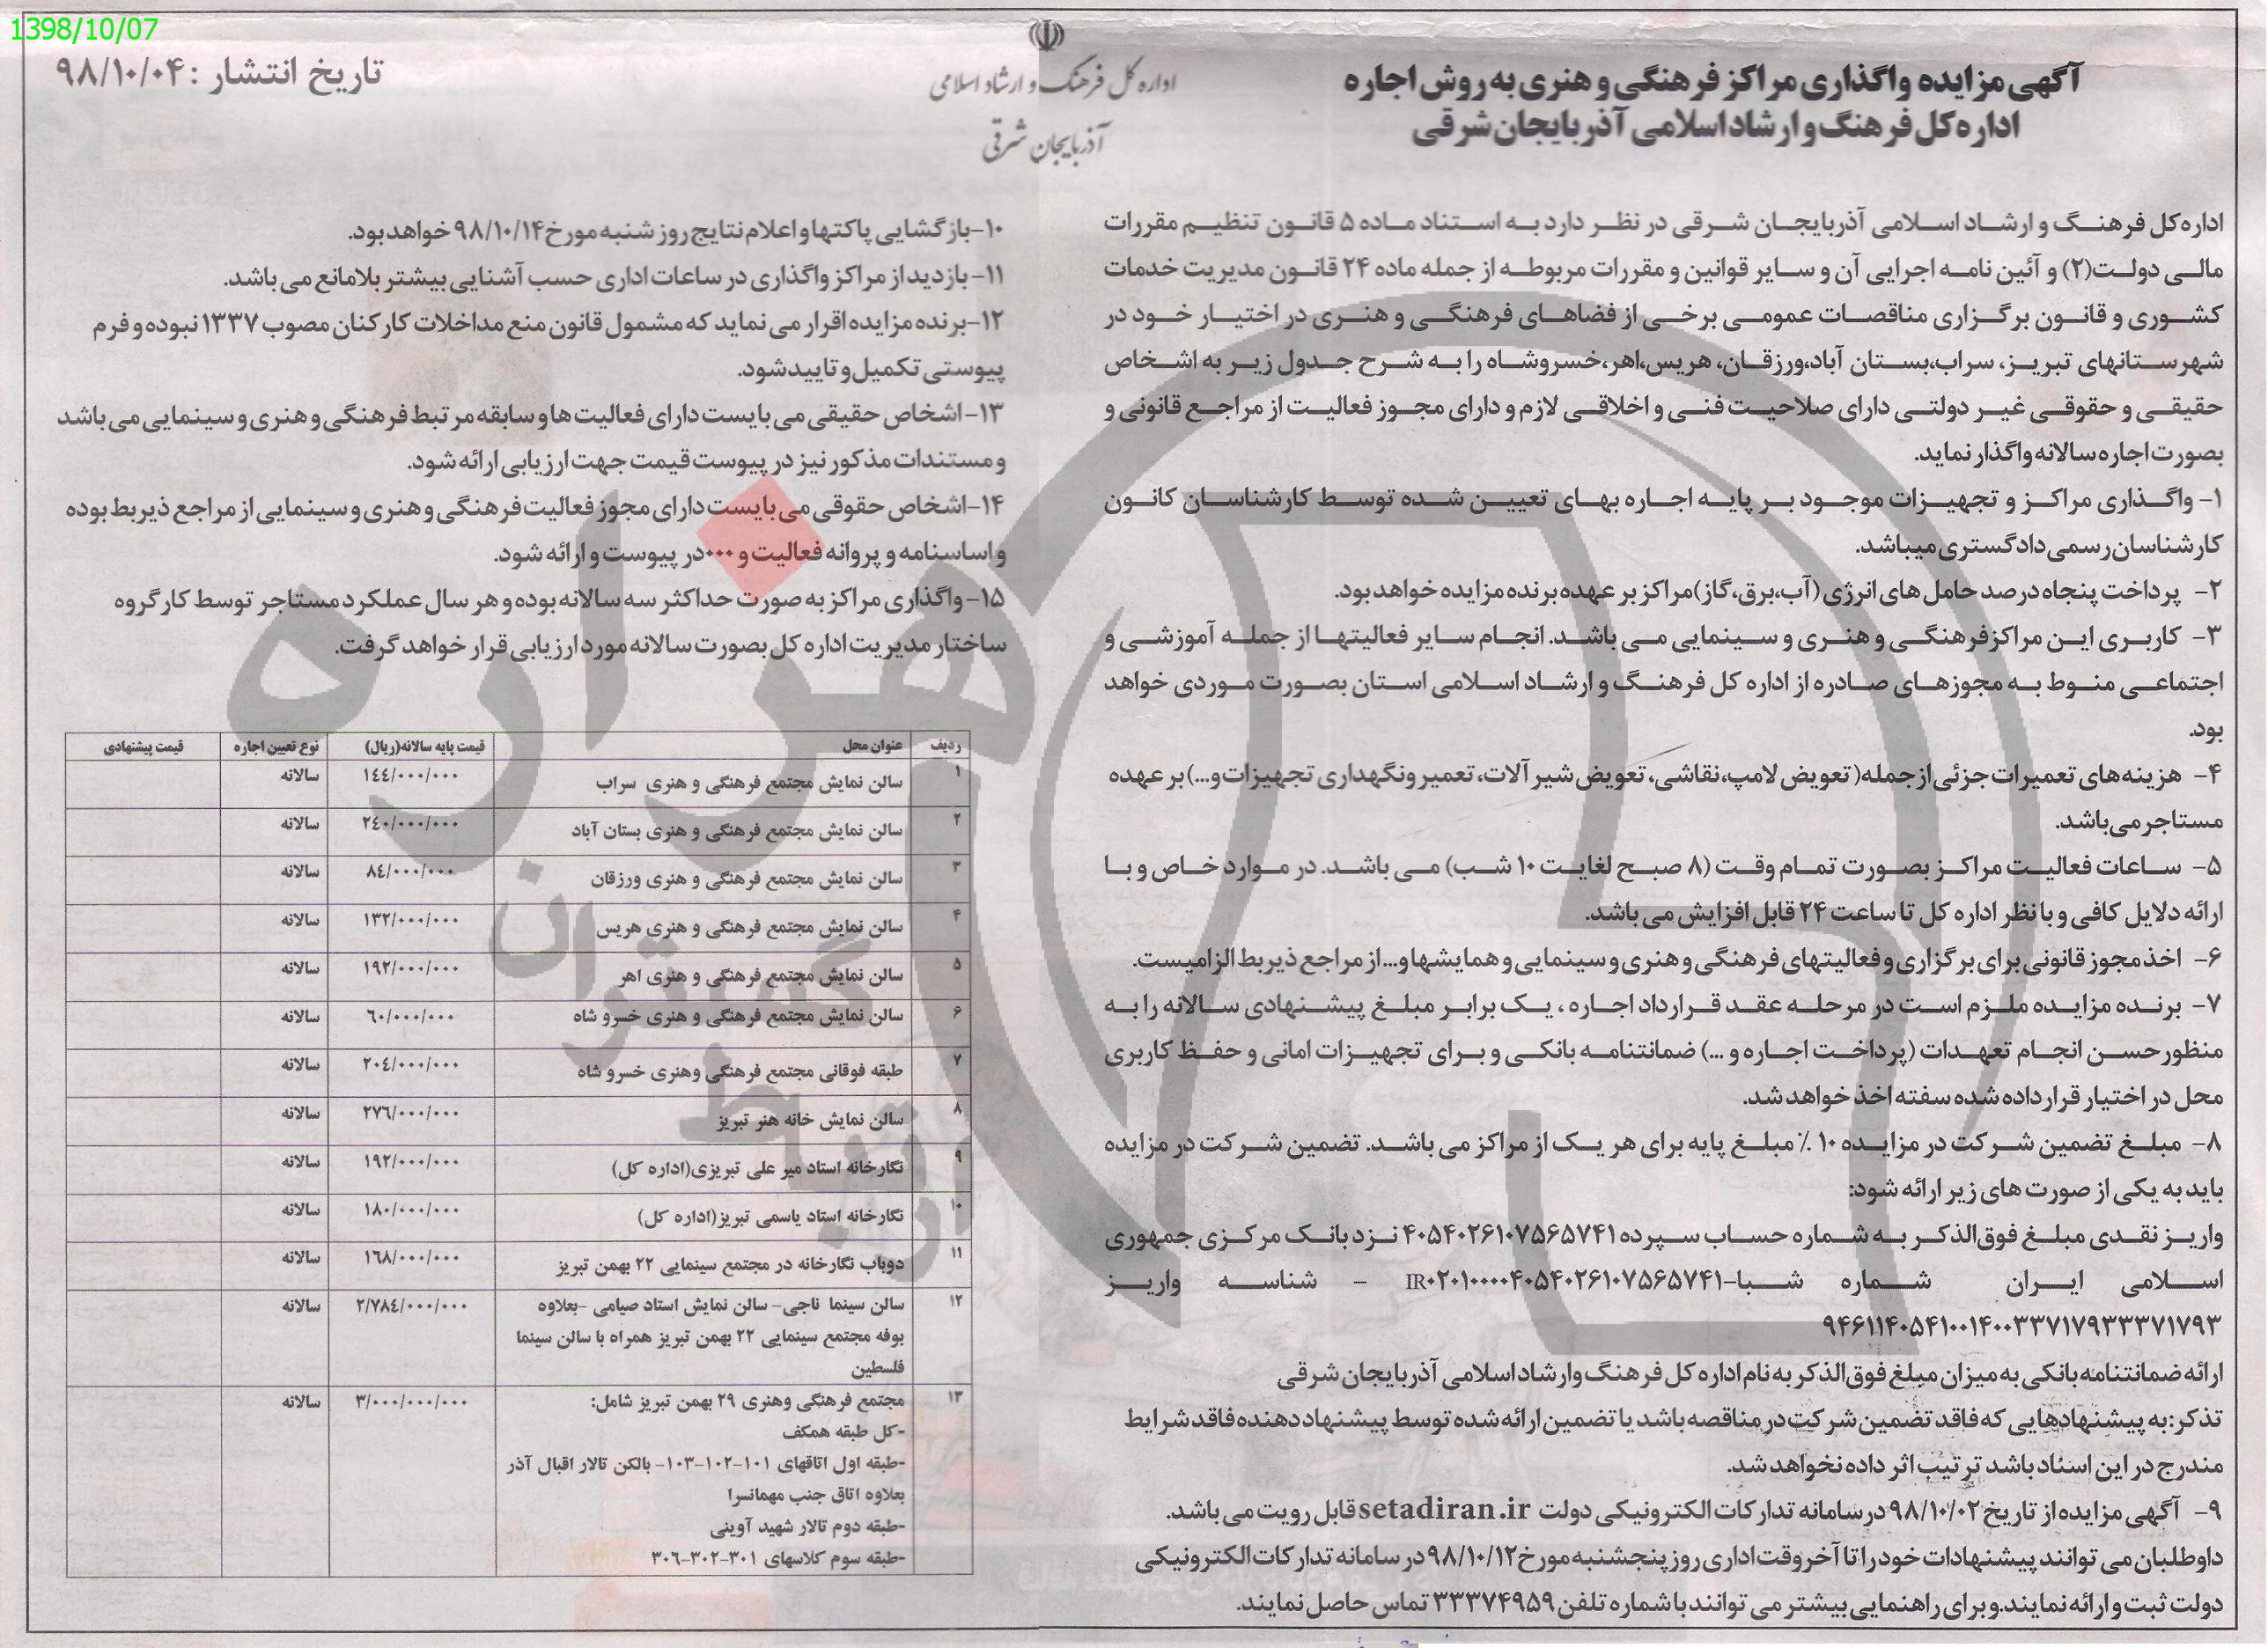 1398/10/07
آگهی مزایده واگذاری مراکز فرهنگی و هنری به روش اجاره
اداره کل فرهنگ و ارشاد اسلامی آذربایجان شرقی
اداره کل فرهنگ و ارشاد اسلامی
آذربایجان شرقی
تاریخ انتشار : ۹۸/۱۰/۰۴
اداره کل فرهنگ و ارشاد اسلامی آذربایجان شرقی در نظر دارد به استناد ماده ۵ قانون تنظیم مقررات
مالی دولت(۲) و آئین نامه اجرایی آن و سایر قوانین و مقررات مربوطه از جمله ماده ۲۴ قانون مدیریت خدمات
کشوری و قانون برگزاری مناقصات عمومی برخی از فضاهای فرهنگی و هنری در اختیار خود در
شهرستانهای تبریز، سراب،بستان آباد،ورزقان، هریس،اهر،خسروشاه را به شرح جدول زیر به اشخاص
حقیقی و حقوقی غیر دولتی دارای صلاحیت فنی و اخلاقی لازم و دارای مجوز فعالیت از مراجع قانونی و
بصورت اجاره سالانه واگذار نماید.
۱- واگذاری مراکز و تجهیزات موجود بر پایه اجاره بهای تعیین شده توسط کارشناسان کانون
کارشناسان رسمی دادگستری میباشد.
۲- پرداخت پنجاه درصد حامل های انرژی (آب،برق،گاز)مراکز بر عهده برنده مزایده خواهد بود.
۳- کاربری این مراکزفرهنگی و هنری و سینمایی می باشد. انجام سایر فعالیتها از جمله آموزشی و
اجتماعی منوط به مجوزهای صادره از اداره کل فرهنگ و ارشاد اسلامی استان بصورت موردی خواهد
بود.
۴- هزینه های تعمیرات جزئی از جمله( تعویض لامپ،نقاشی، تعویض شیر آلات، تعمیر ونگهداری تجهیزات و...)بر عهده
مستاجر می باشد.
۵- ساعات فعالیت مراکز بصورت تمام وقت (۸ صبح لغایت ۱۰ شب) می باشد. در موارد خاص و با
ارائه دلایل کافی و با نظر اداره کل تا ساعت ۲۴ قابل افزایش می باشد.
۶- اخذ مجوز قانونی برای برگزاری و فعالیتهای فرهنگی و هنری و سینمایی و همایشها و...از مراجع ذیربط الزامیست.
۷- برنده مزایده ملزم است در مرحله عقد قرارداد اجاره ، یک برابر مبلغ پیشنهادی سالانه را به
منظور حسن انجام تعهدات (پرداخت اجاره و ...) ضمانتنامه بانکی و برای تجهیزات امانی و حفظ کاربری
محل در اختیار قرار داده شده سفته اخذ خواهد شد.
۸- مبلغ تضمین شرکت در مزایده ۱۰ ٪ مبلغ پایه برای هر یک از مراکز می باشد. تضمین شرکت در مزایده
باید به یکی از صورت های زیر ارائه شود:
واریز نقدی مبلغ فوق الذکر به شماره حساب سپرده ۴۰۵۴۰۲۶۱۰۷۵۶۵۷۴۱ نزد بانک مرکزی جمهوری
اسلامی ایران شماره شبا-IR۰۲۰۱۰۰۰۰۴۰۵۴۰۲۶۱۰۷۵۶۵۷۴۱ - شناسه واریز
۹۴۶۱۱۴۰۵۴۱۰۰۱۴۰۰۳۳۷۱۷۹۳۳۳۷۱۷۹۳
ارائه ضمانتنامه بانکی به میزان مبلغ فوق الذکر به نام اداره کل فرهنگ وارشاد اسلامی آذربایجان شرقی
تذکر:به پیشنهادهایی که فاقد تضمین شرکت در مناقصه باشد یا تضمین ارائه شده توسط پیشنهاد دهنده فاقد شرایط
مندرج در این اسناد باشد ترتیب اثر داده نخواهد شد.
۹- آگهی مزایده از تاریخ ۹۸/۱۰/۰۲ در سامانه تدارکات الکترونیکی دولت setadiran.ir قابل رویت می باشد.
داوطلبان می توانند پیشنهادات خود را تا آخر وقت اداری روز پنجشنبه مورخ ۹۸/۱۰/۱۲ در سامانه تدارکات الکترونیکی
دولت ثبت و ارائه نمایند.و برای راهنمایی بیشتر می توانند با شماره تلفن ۳۳۳۷۴۹۵۹ تماس حاصل نمایند.
۱۰-بازگشایی پاکتها و اعلام نتایج روز شنبه مورخ ۹۸/۱۰/۱۴ خواهد بود.
۱۱- بازدید از مراکز واگذاری در ساعات اداری حسب آشنایی بیشتر بلامانع می باشد.
۱۲-برنده مزایده اقرار می نماید که مشمول قانون منع مداخلات کارکنان مصوب ۱۳۳۷ نبوده و فرم
پیوستی تکمیل و تایید شود.
۱۳- اشخاص حقیقی می بایست دارای فعالیت ها و سابقه مرتبط فرهنگی و هنری و سینمایی می باشد
و مستندات مذکور نیز در پیوست قیمت جهت ارزیابی ارائه شود.
۱۴-اشخاص حقوقی می بایست دارای مجوز فعالیت فرهنگی و هنری و سینمایی از مراجع ذیربط بوده
و اساسنامه و پروانه فعالیت و ۰۰۰در پیوست و ارائه شود.
۱۵- واگذاری مراکز به صورت حداکثر سه سالانه بوده و هر سال عملکرد مستاجر توسط کارگروه
ساختار مدیریت اداره کل بصورت سالانه مورد ارزیابی قرار خواهد گرفت.
ردیف عنوان محل قیمت پایه سالانه(ریال) نوع تعیین اجاره قیمت پیشنهادی
۱ سالن نمایش مجتمع فرهنگی و هنری سراب ۱٤٤/۰۰۰/۰۰۰ سالانه
۲ سالن نمایش مجتمع فرهنگی و هنری بستان آباد ۲٤۰/۰۰۰/۰۰۰ سالانه
۳ سالن نمایش مجتمع فرهنگی و هنری ورزقان ۸٤/۰۰۰/۰۰۰ سالانه
۴ سالن نمایش مجتمع فرهنگی و هنری هریس ۱۳۲/۰۰۰/۰۰۰ سالانه
۵ سالن نمایش مجتمع فرهنگی و هنری اهر ۱۹۲/۰۰۰/۰۰۰ سالانه
۶ سالن نمایش مجتمع فرهنگی و هنری خسرو شاه ٦۰/۰۰۰/۰۰۰ سالانه
۷ طبقه فوقانی مجتمع فرهنگی وهنری خسرو شاه ۲۰٤/۰۰۰/۰۰۰ سالانه
۸ سالن نمایش خانه هنر تبریز ۲۷٦/۰۰۰/۰۰۰ سالانه
۹ نگارخانه استاد میر علی تبریزی(اداره کل) ۱۹۲/۰۰۰/۰۰۰ سالانه
۱۰ نگارخانه استاد یاسمی تبریز(اداره کل) ۱۸۰/۰۰۰/۰۰۰ سالانه
۱۱ دوباب نگارخانه در مجتمع سینمایی ۲۲ بهمن تبریز ۱٦۸/۰۰۰/۰۰۰ سالانه
۱۲ سالن سینما ناجی- سالن نمایش استاد صیامی -بعلاوه ۲/۷۸٤/۰۰۰/۰۰۰ سالانه
بوفه مجتمع سینمایی ۲۲ بهمن تبریز همراه با سالن سینما
فلسطین
۱۳ مجتمع فرهنگی وهنری ۲۹ بهمن تبریز شامل: ۳/۰۰۰/۰۰۰/۰۰۰ سالانه
-کل طبقه همکف
-طبقه اول اتاقهای ۱۰۱-۱۰۲-۱۰۳- بالکن تالار اقبال آذر
بعلاوه اتاق جنب مهمانسرا
-طبقه دوم تالار شهید آوینی
-طبقه سوم کلاسهای ۳۰۱-۳۰۲-۳۰۶
هزاره
گستران